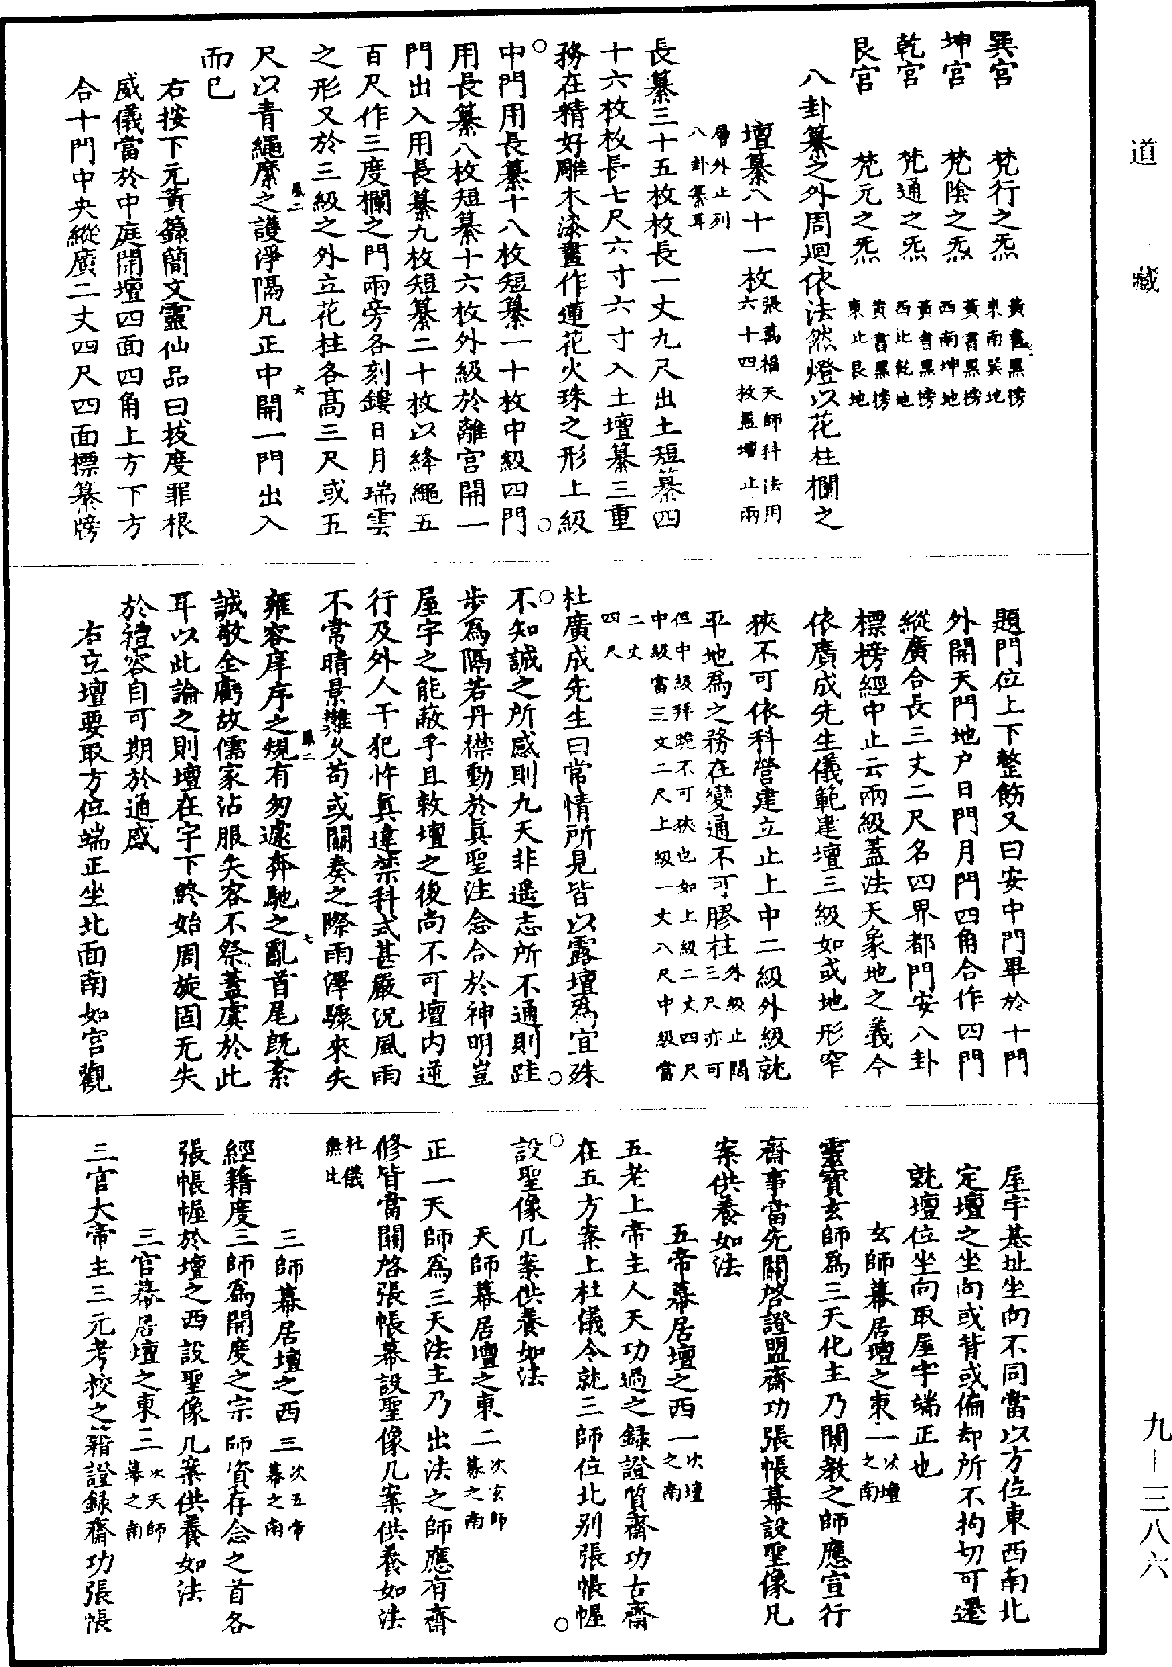 巽宮　梵行之炁　黃書黑榜東南巽地
坤宮　梵陰之炁　黃書黑榜西南坤地
乾宮　梵通之炁　黃書黑榜西北乾地
艮宮　梵元之炁　黃書黑榜東北艮地
八卦纂之外周廻依法然燈以花柱欄之
壇纂八十一枚張萬福天師科法用六十四枚蓋壇止兩層外止列八卦纂耳
長纂三十五枚枚長一丈九尺出土短纂四
十六枚枚長七尺六寸六寸入土壇纂三重
務在精好雕木漆畫作蓮花火珠之形上級
中門用長纂十八枚短纂一十枚中級四門
用長纂八枚短纂十六枚外級於離宮開一
門出入用長纂九枚短纂二十枚以絳繩五
百尺作三度欄之門兩旁各刻鏤日月瑞雲
之形又於三級之外立花柱各高三尺或五
尺以青繩縻之護淨隔凡正中開一門出入
而已
右按下元黃籙簡文靈仙品曰拔度罪根
威儀當於中庭開壇四面四角上方下方
合十門中央縱廣二丈四尺四面標纂牓
題門位上下整飭又曰安中門畢於十門
外開天門地户日門月門四角合作四門
縱廣合長三丈二尺名四界都門安八卦
標榜經中止云兩級蓋法天象地之義今
依廣成先生儀範建壇三級如或地形窄
狹不可依科營建立止上中二級外級就
平地爲之務在變通不可膠柱外級止闊三尺亦可
但中級拜跪不可狹也如上級二丈四尺
中級當三丈二尺上級一丈八尺中級當
二丈
四尺
杜廣成先生曰常情所見皆以露壇爲宜殊
不知誠之所感則九天非遙志所不通則跬
步爲隔若丹襟動於眞聖注念合於神明豈
屋宇之能蔽乎且敕壇之後尚不可壇内逆
行及外人干犯忤眞違禁科式甚嚴況風雨
不常晴景難久苟或關奏之際雨澤驟來失
雍容庠序之規有匆遽奔馳之亂首尾旣紊
誠敬全虧故儒家沾服失容不祭蓋虞於此
耳以此論之則壇在宇下終始周旋固无失
於禮容自可期於通感
右立壇要取方位端正坐北面南如宮觀
屋宇基址坐向不同當以方位東西南北
定壇之坐向或背或偏却所不拘切可遷
就壇位坐向取屋宇端正也
玄師幕居壇之東一次壇之南
靈寶玄師爲三天化主乃開教之師應宣行
齋事當先關啓證盟齋功張帳幕設聖像几
案供養如法
五帝幕居壇之西一次壇之南
五老上帝主人天功過之録證質齋功古齋
在五方案上杜儀令就三師位北别張帳幄
設聖像几案供養如法
天師幕居壇之東二次玄師幕之南
正一天師爲三天法主乃出法之師應有齋
修皆當關啓張帳幕設聖像几案供養如法
杜儀無此
三師幕居壇之西二次五帝幕之南
經籍度三師爲開度之宗師資存念之首各
張帳幄於壇之西設聖像几案供養如法
三官幕居壇之東三次天師幕之南
三官大帝主三元考校之籍證録齋功張帳
道　藏
九—三八六